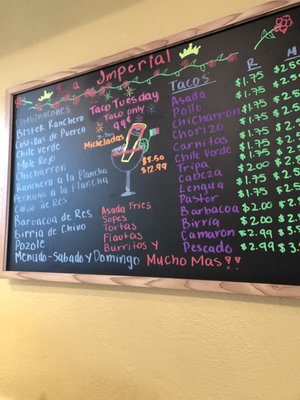 La Imperial
Combinaciones
Bistek Ranchero
Costillas de Puerco
Chile verde
Chile Rojo
Chicharron
Ranchera a la Plancha
Pechuga a la Plancha
Caldo de Res
Barbacoa de Res
Birria de Chivo
Pozole
Menudo-Sabado y Domingo
Taco Tuesday
Taco only
99¢
Micheladas
$8.50
$12.99
Asada Fries
Sopes
Tortas
Flautas
Burritos y
Mucho Mas!!
Tacos R M
Asada $1.75
Pollo $1.75
Chicharron $1.75
Chorizo $1.75
Carnitas $1.75
Chile Verde $1.75
Tripa $2.00
Cabeza $1.75
Lengua $2.00
Pastor $1.75
Barbacoa $2.00
Birria $2.00
Camaron $2.99
Pescado $2.99